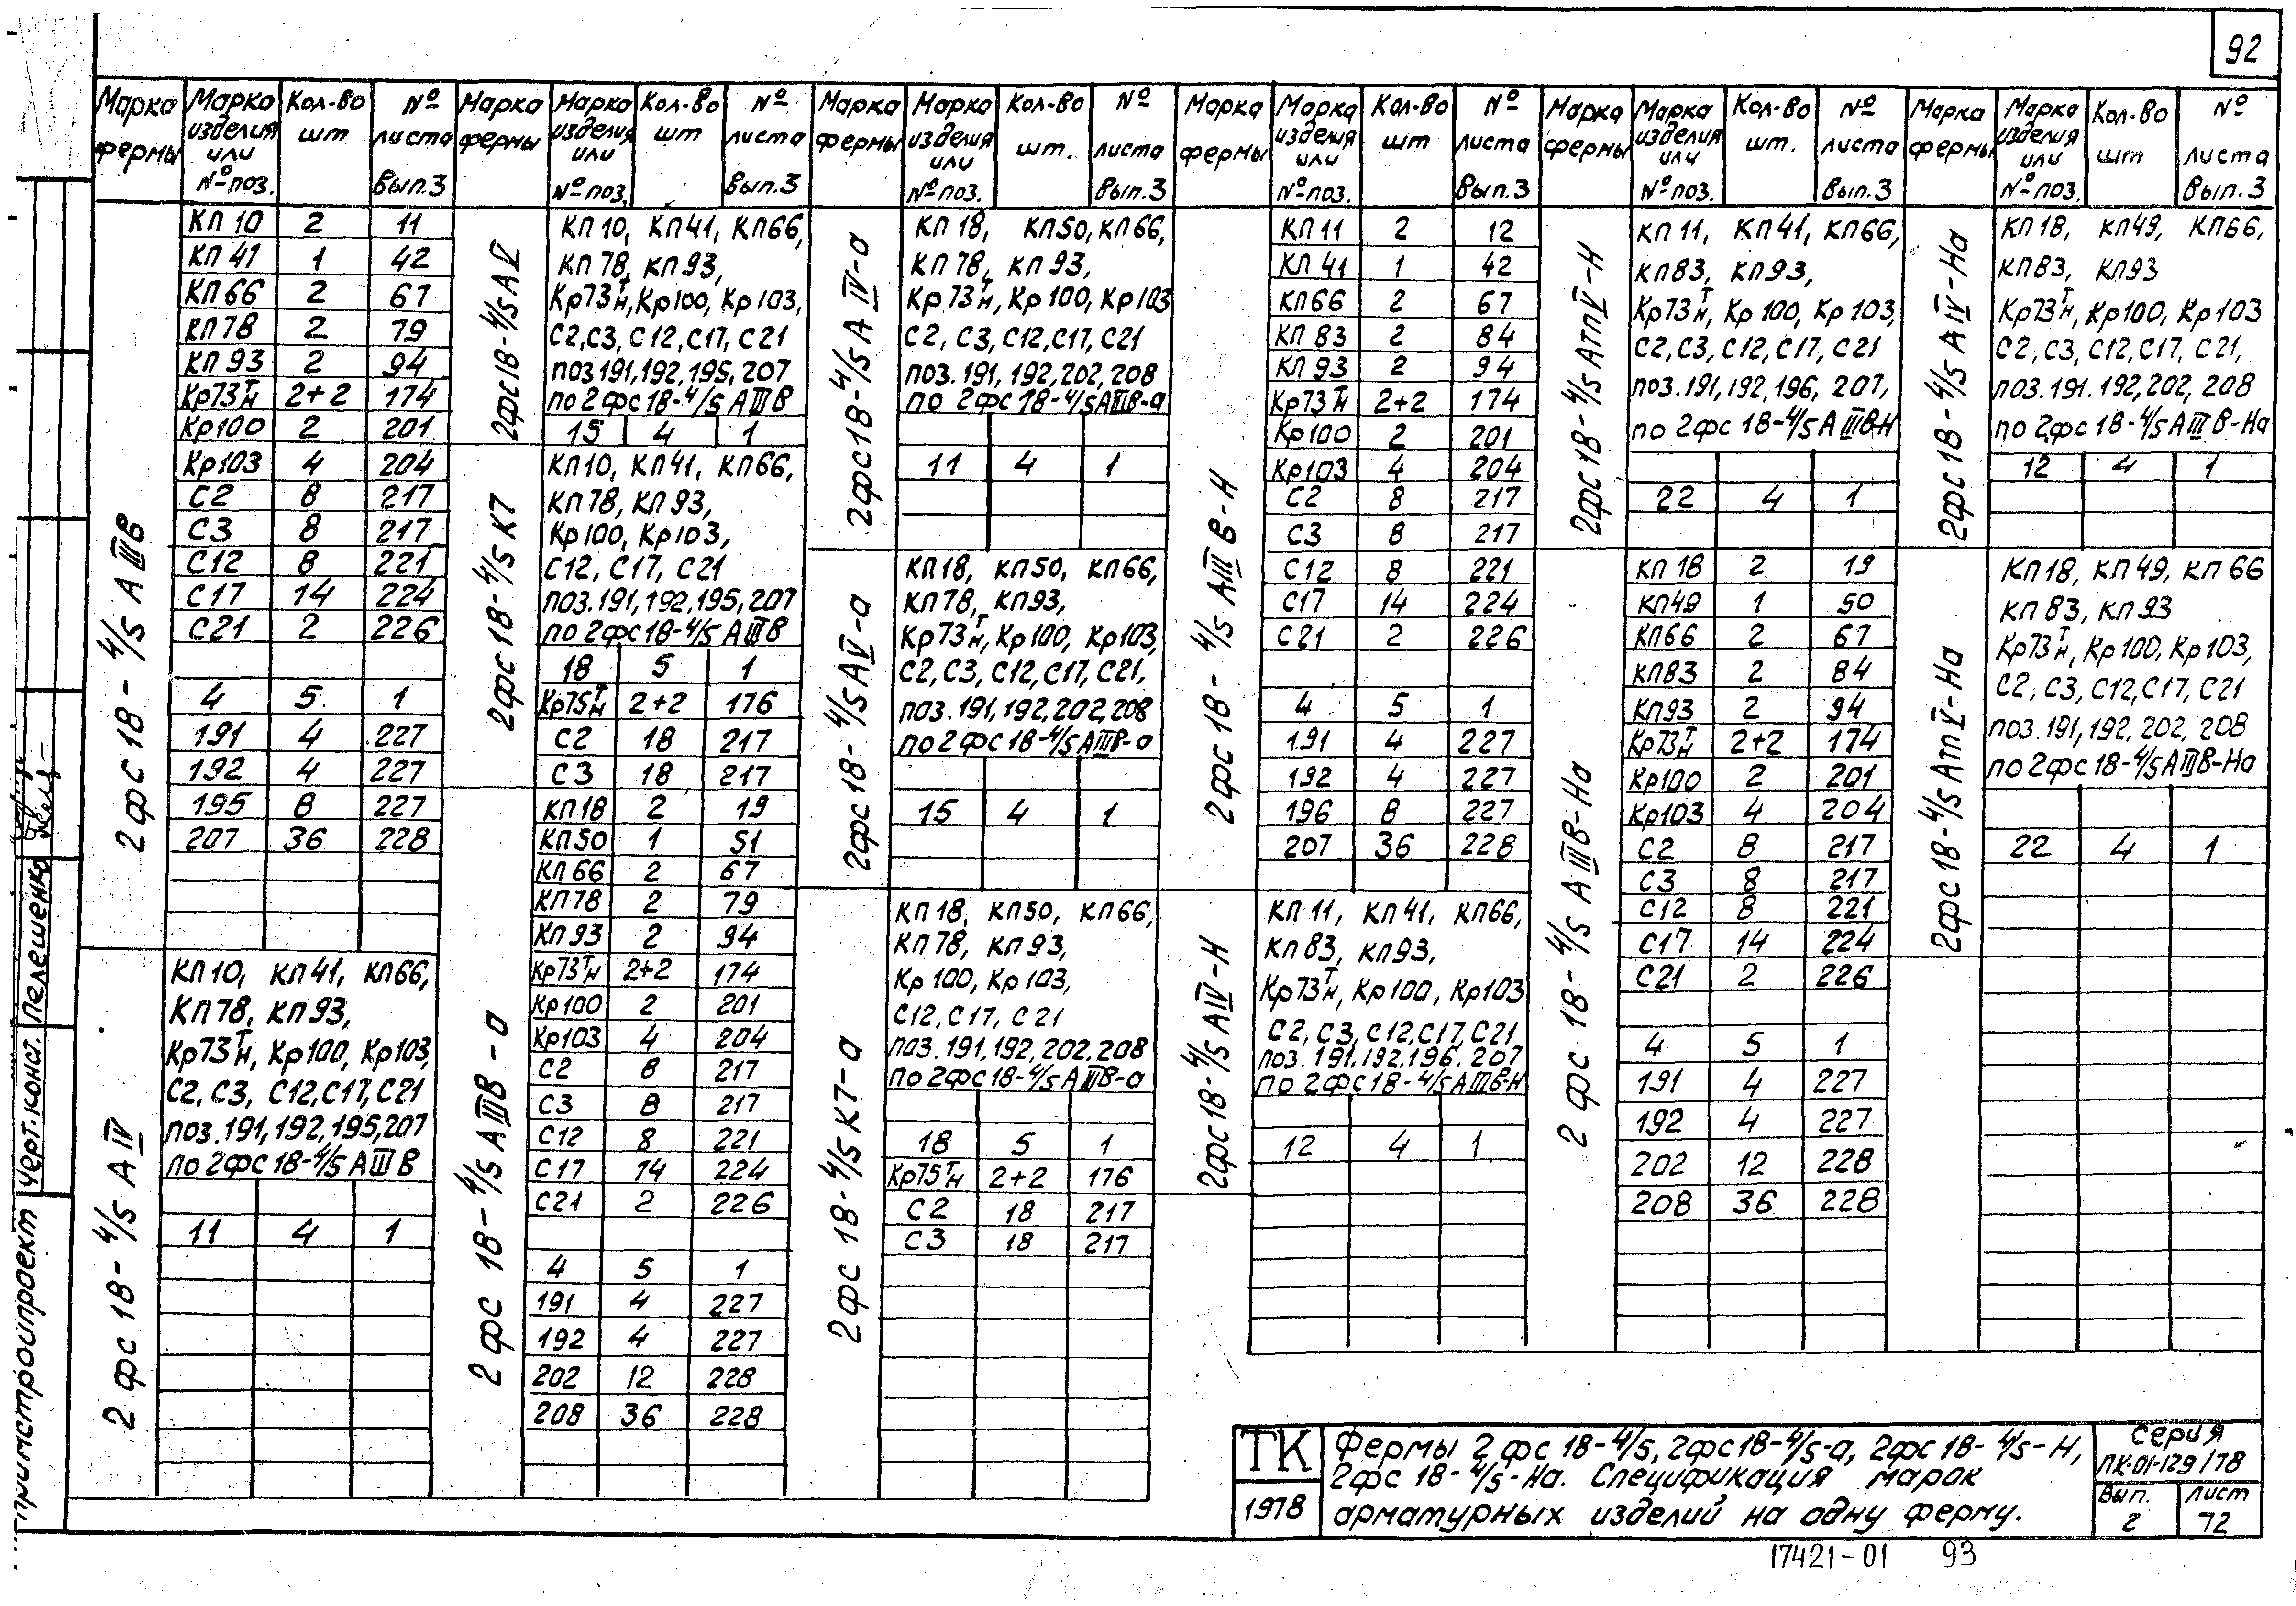 92
Марка фермы | Марка изделия или № поз. | Кол-во шт | № листа Вып.3
2фс 18-4/5 АIIIВ
КП 10 2 11
КП 41 1 42
КП 66 2 67
КП 78 2 79
КП 93 2 94
Кр73Т Н 2+2 174
Кр100 2 201
Кр103 4 204
С2 8 217
С3 8 217
С12 8 221
С17 14 224
С21 2 226
4 5 1
191 4 227
192 4 227
195 8 227
207 36 228
2фс 18-4/5 АIV
КП10, КП41, КП66,
КП78, КП93,
Кр73Т Н, Кр100, Кр103,
С2, С3, С12, С17, С21
поз. 191, 192, 195, 207
по 2фс 18-4/5 АIIIВ
11 4 1
Марка фермы | Марка изделия или № поз. | Кол-во шт | № листа Вып.3
2фс18-4/5 АV
КП 10, КП41, КП66,
КП 78, КП 93,
Кр73Т Н, Кр100, Кр103,
С2, С3, С12, С17, С21
поз 191, 192, 195, 207
по 2фс 18-4/5 АIIIВ
15 4 1
2фс 18-4/5 К7
КП10, КП41, КП66,
КП78, КП93,
Кр100, Кр103,
С12, С17, С21
поз. 191, 192, 195, 207
по 2фс18-4/5 АIIIВ
18 5 1
Кр75Т Н 2+2 176
С2 18 217
С3 18 217
2фс 18-4/5 АIIIВ-а
КП18 2 19
КП50 1 51
КП66 2 67
КП78 2 79
КП93 2 94
Кр73Т Н 2+2 174
Кр100 2 201
Кр103 4 204
С2 8 217
С3 8 217
С12 8 221
С17 14 224
С21 2 226
4 5 1
191 4 227
192 4 227
202 12 228
208 36 228
Марка фермы | Марка изделия или № поз. | Кол-во шт. | № листа Вып.3
2фс18-4/5 АIV-а
КП 18, КП50, КП66,
КП78, КП93,
Кр73Т Н, Кр100, Кр103
С2, С3, С12, С17, С21
поз. 191, 192, 202, 208
по 2фс 18-4/5АIIIВ-а
11 4 1
2фс18-4/5АV-а
КП18, КП50, КП66,
КП78, КП93,
Кр73Т Н, Кр100, Кр103,
С2, С3, С12, С17, С21,
поз. 191, 192, 202, 208
по 2фс 18-4/5АIIIВ-а
15 4 1
2фс 18-4/5 К7-а
КП18, КП50, КП66,
КП78, КП93,
Кр100, Кр103,
С12, С17, С21
поз. 191, 192, 202, 208
по 2фс 18-4/5 АIIIВ-а
18 5 1
Кр75Т Н 2+2 176
С2 18 217
С3 18 217
Марка фермы | Марка изделия или № поз. | Кол-во шт | № листа Вып.3
2фс 18-4/5 АIIIВ-Н
КП11 2 12
КП41 1 42
КП66 2 67
КП83 2 84
КП93 2 94
Кр73Т Н 2+2 174
Кр100 2 201
Кр103 4 204
С2 8 217
С3 8 217
С12 8 221
С17 14 224
С21 2 226
4 5 1
191 4 227
192 4 227
196 8 227
207 36 228
2фс18-4/5 АIV-Н
КП11, КП41, КП66,
КП83, КП93,
Кр73Т Н, Кр100, Кр103
С2, С3, С12, С17, С21
поз. 191, 192, 196, 207
по 2фс18-4/5АIIIВ-Н
12 4 1
Марка фермы | Марка изделия или № поз. | Кол-во шт. | № листа Вып.3
2фс18-4/5 АтпV-Н
КП11, КП41, КП66,
КП83, КП93,
Кр73Т Н, Кр100, Кр103,
С2, С3, С12, С17, С21
поз. 191, 192, 196, 207,
по 2фс 18-4/5АIIIВ-Н
22 4 1
2фс 18-4/5 АIIIВ-На
КП18 2 19
КП49 1 50
КП66 2 67
КП83 2 84
КП93 2 94
Кр73Т Н 2+2 174
Кр100 2 201
Кр103 4 204
С2 8 217
С3 8 217
С12 8 221
С17 14 224
С21 2 226
4 5 1
191 4 227
192 4 227
202 12 228
208 36 228
Марка фермы | Марка изделия или № поз. | Кол-во шт | № листа Вып.3
2фс18-4/5 АIV-На
КП18, КП49, КП66,
КП83, КП93
Кр73Т Н, Кр100, Кр103
С2, С3, С12, С17, С21,
поз. 191. 192, 202, 208
по 2фс 18-4/5АIIIВ-На
12 4 1
2фс18-4/5АтпV-На
КП18, КП49, КП66
КП83, КП93
Кр73Т Н, Кр100, Кр103,
С2, С3, С12, С17, С21
поз. 191, 192, 202, 208
по 2фс18-4/5АIIIВ-На
22 4 1
Черт.конст. Пелешенко
ТК
1978
Фермы 2фс 18-4/5, 2фс18-4/5-а, 2фс 18-4/5-Н,
2фс 18-4/5-На. Спецификация марок
арматурных изделий на одну ферму.
серия
ПК-01-129/78
Вып. 2
Лист 72
17421-01 93